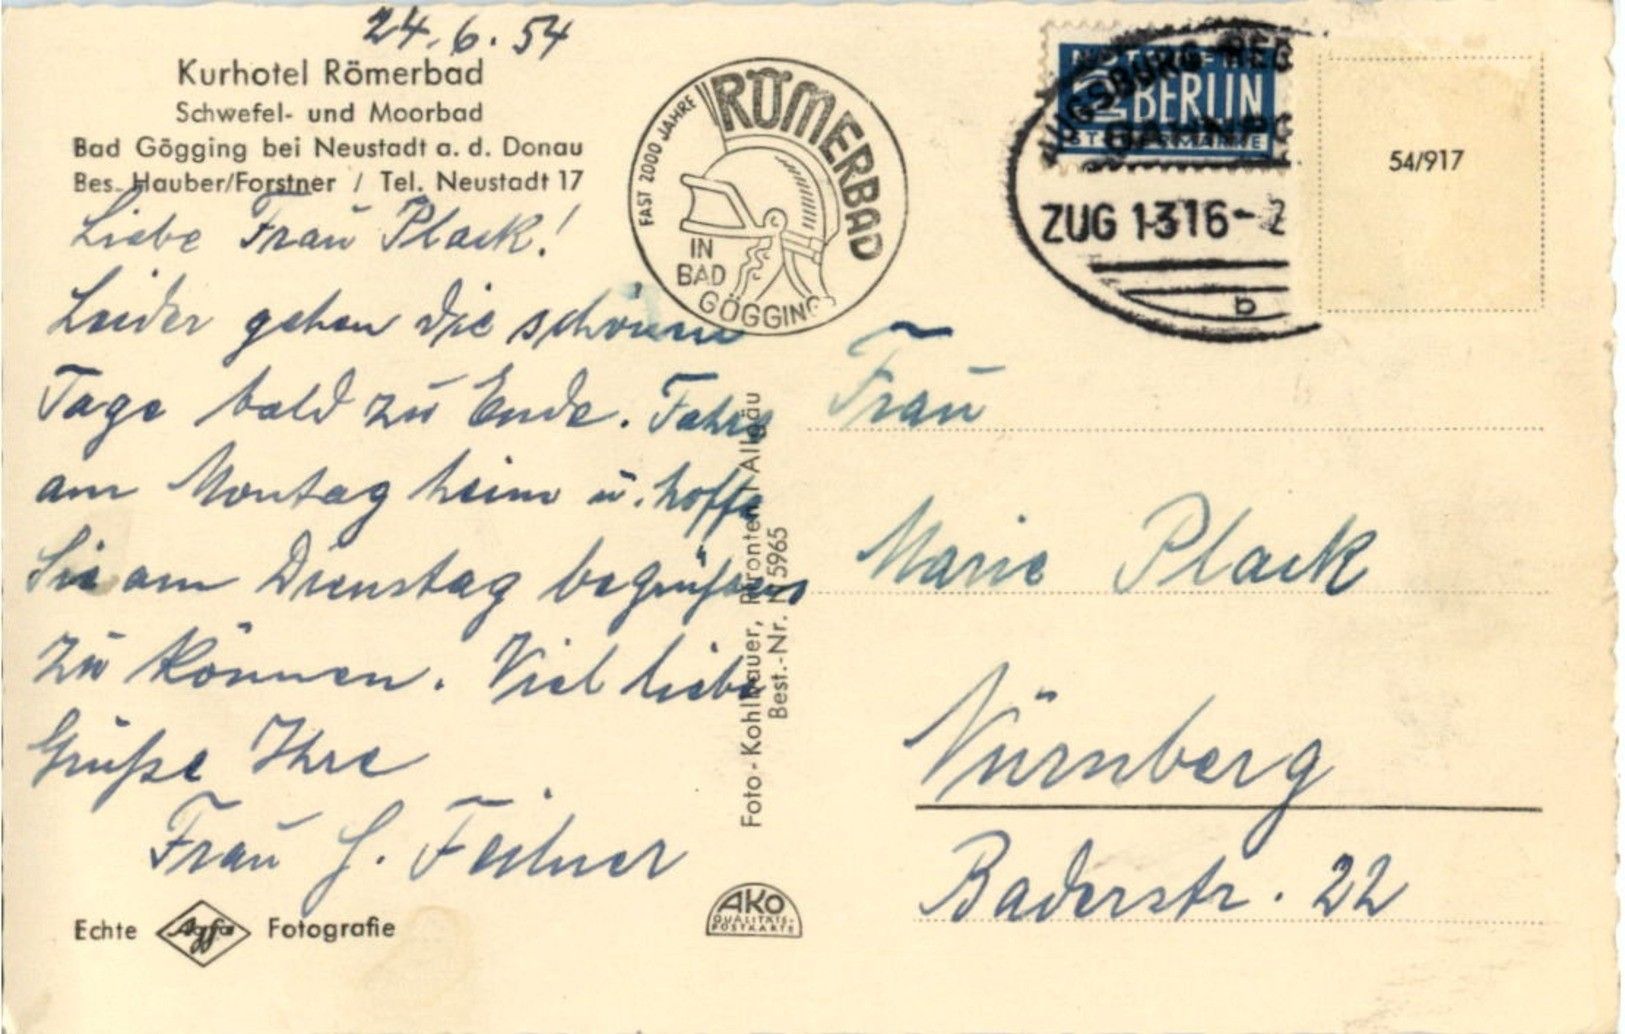 24.6.54
Kurhotel Römerbad
Schwefel- und Moorbad
Bad Gögging bei Neustadt a. d. Donau
Bes. Hauber/Forstner / Tel. Neustadt 17
Liebe Frau Plack!
Leider gehen die schönen
Tage bald zu Ende. Fahre
am Montag heim u. hoffe
Sie am Dienstag begrüßen
zu können. Viel liebe
Grüße Ihre
Frau G. Feilner
Echte Agfa Fotografie
FAST 2000 JAHRE
RÖMERBAD
IN
BAD
GÖGGING
Foto-Kohlbauer, Pfronten / Allgäu
Best.-Nr. N 5965
AKO
QUALITÄTS-
POSTKARTE
NOTOPFER
2 BERLIN
STEUERMARKE
AUGSBURG REG
BAHNPO
ZUG 1316-2
b
54/917
Frau
Marie Plack
Nürnberg
Baderstr. 22